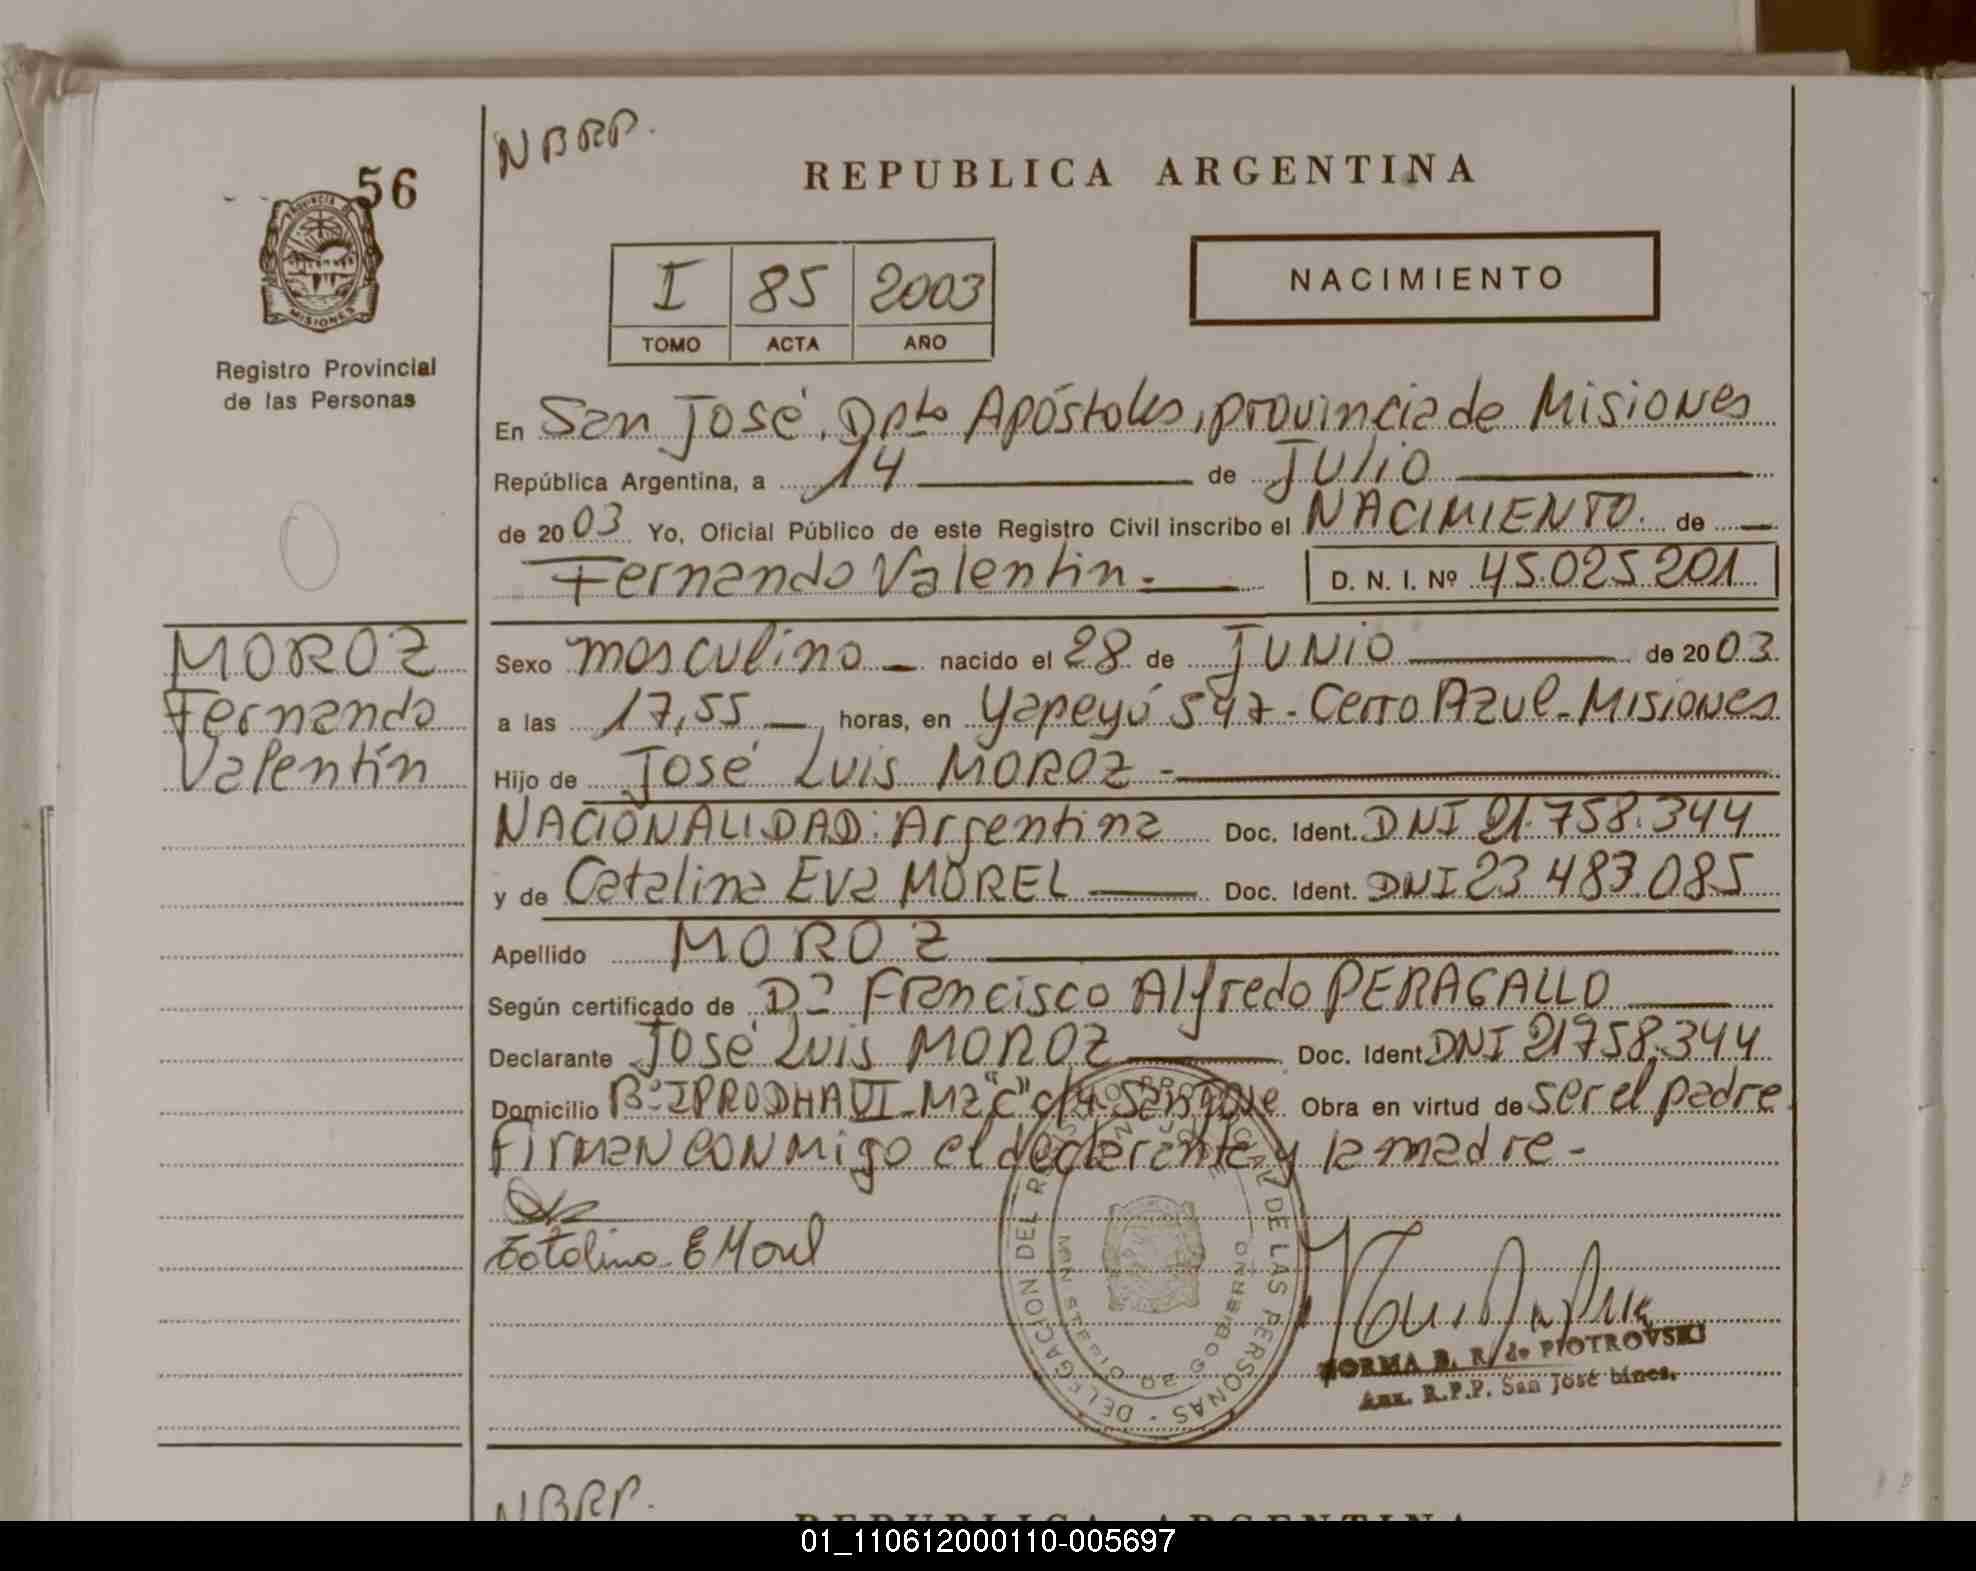 56
NBRP.
REPUBLICA ARGENTINA
PROVINCIA DE
MISIONES
Registro Provincial
de las Personas
I 85 2003
TOMO ACTA AÑO
NACIMIENTO
En San José, Dpto Apóstoles, provincia de Misiones
República Argentina, a 14 de Julio
de 2003 Yo, Oficial Público de este Registro Civil inscribo el NACIMIENTO. de
Fernando Valentin.
D. N. I. Nº 45.025.201
MOROZ
Fernando
Valentín
Sexo masculino nacido el 28 de JUNIO de 2003
a las 17,55 horas, en Yapeyú 547 - Cerro Azul - Misiones
Hijo de José Luis MOROZ -
NACIONALIDAD: Argentina Doc. Ident. DNI 21.758.344
y de Catalina Eva MOREL Doc. Ident. DNI 23 483.085
Apellido MOROZ
Según certificado de Dº Francisco Alfredo PERAGALLO
Declarante José Luis MOROZ Doc. Ident DNI 21758.344
Domicilio Bº IPRODHA VI - Mz "C" San José Obra en virtud de ser el padre
Firman conmigo el declarante y la madre -
Catalina E Morel
DELEGACION DEL REGISTRO PROVINCIAL DE LAS PERSONAS
MINISTERIO DE GOBIERNO
NORMA B. R. de PIOTROVSKI
Aux. R.P.P. San José Mnes.
NBRP.
REPUBLICA ARGENTINA
01_110612000110-005697